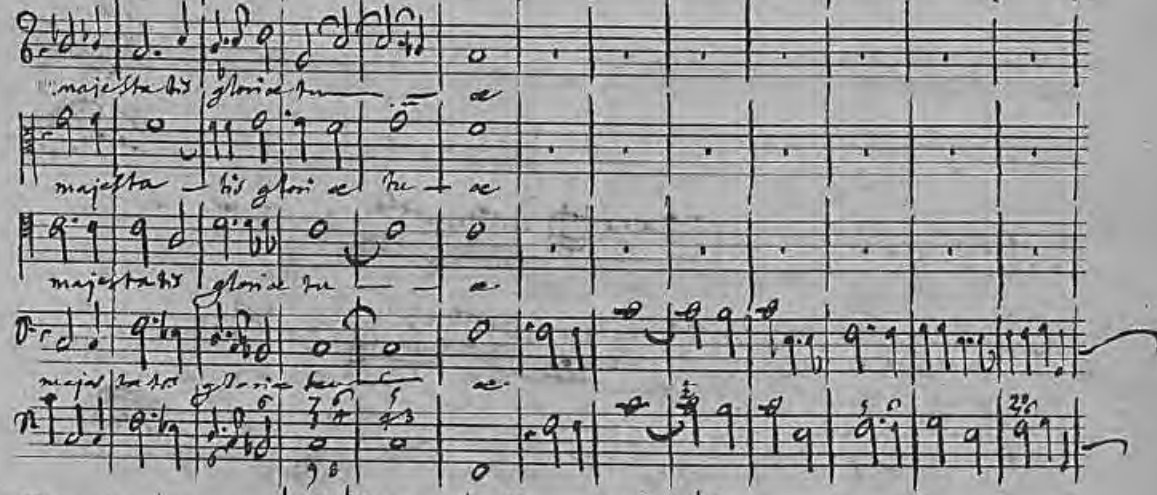 majestatis gloriæ tu — — æ
majesta — tis gloriæ tu — æ
majestatis gloriæ tu — — æ
majestatis gloriæ tu — æ.